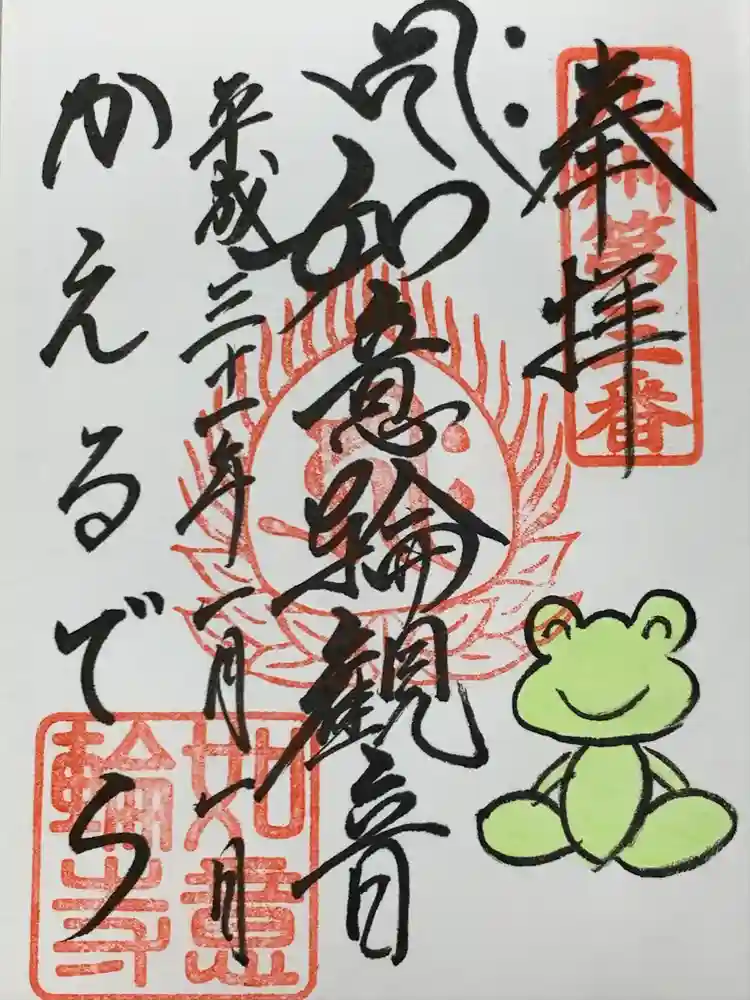 九州第三番
奉拝
如意輪觀音
平成三十一年一月一日
かえるでら
如意
輪寺